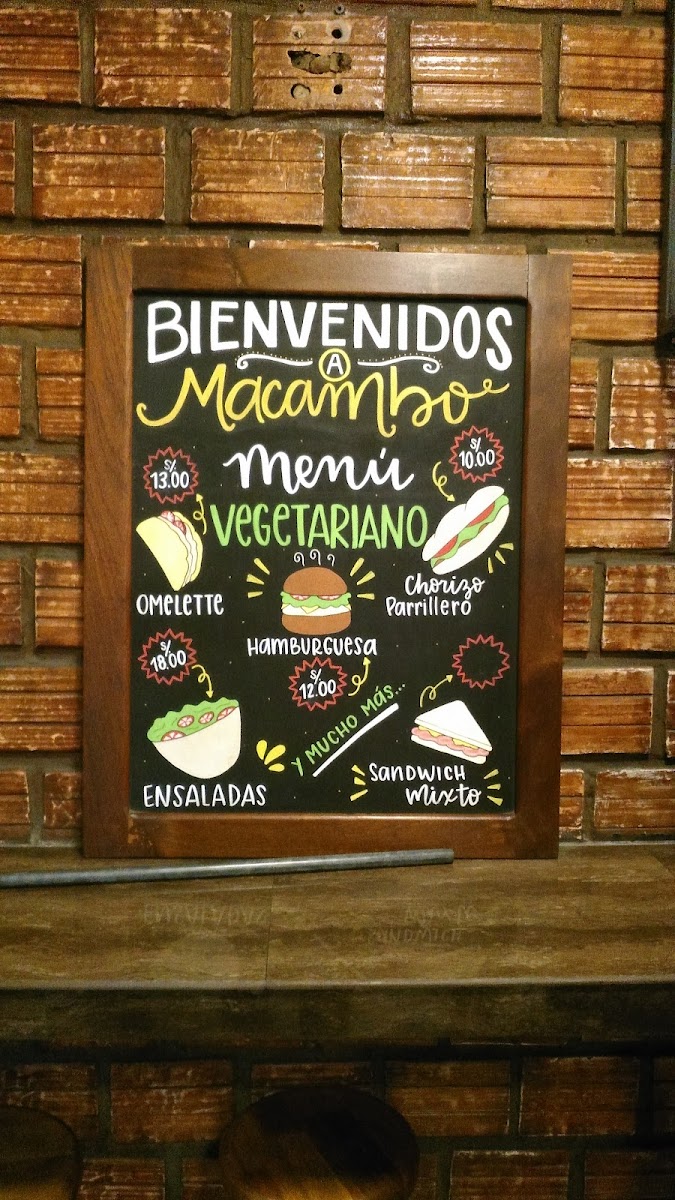 BIENVENIDOS
A
Macambo
Menú
VEGETARIANO
S/. 13.00
S/. 10.00
OMELETTE
Chorizo
Parrillero
HAMBURGUESA
S/. 18.00
S/. 12.00
Y MUCHO MÁS...
ENSALADAS
SANDWICH
Mixto